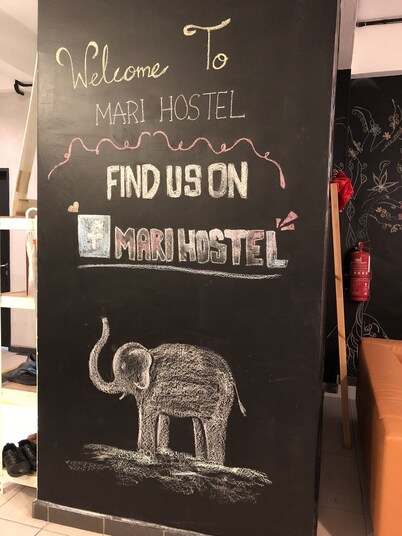 Welcome To
MARI HOSTEL
FIND US ON
f MARI HOSTEL